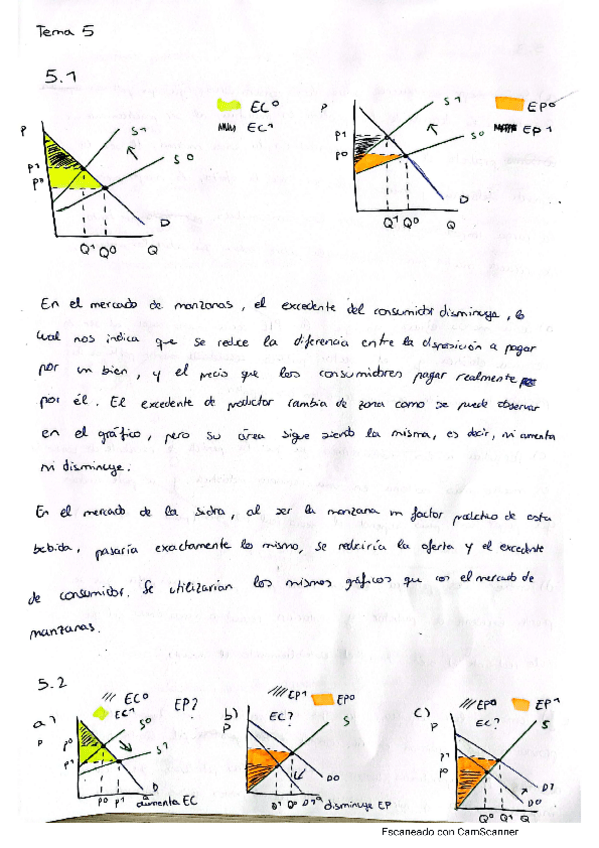 Tema 5
5.1
EC⁰
EC¹
P
S¹
S⁰
P¹
P⁰
D
Q¹ Q⁰
Q
EP⁰
EP¹
P
S¹
S⁰
P¹
P⁰
D
Q¹ Q⁰
Q
En el mercado de manzanas, el excedente del consumidor disminuye, lo
cual nos indica que se reduce la diferencia entre la disposición a pagar
por un bien, y el precio que los consumidores pagar realmente
por él. El excedente de productor cambia de zona como se puede observar
en el gráfico, pero su área sigue siendo la misma, es decir, ni aumenta
ni disminuye.
En el mercado de la sidra, al ser la manzana un factor productivo de esta
bebida, pasaría exactamente lo mismo, se reduciría la oferta y el excedente
de consumidor. Se utilizarían los mismos gráficos que con el mercado de
manzanas.
5.2
a)
EC⁰
EC¹
EP?
P
S⁰
S¹
P⁰
P¹
D
P⁰ P¹
aumenta EC
b)
EP¹
EP⁰
EC?
P
S
D⁰
disminuye EP
c)
EP⁰
EP¹
EC?
P
S
P¹
P⁰
D¹
D⁰
Q⁰ Q¹ Q
Escaneado con CamScanner